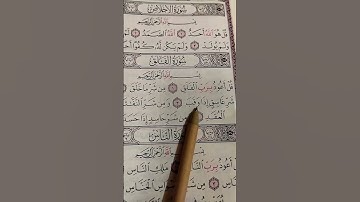 سُورَةُ الْإِخْلَاصِ
بِسْمِ اللَّهِ الرَّحْمَٰنِ الرَّحِيمِ
قُلْ هُوَ اللَّهُ أَحَدٌ ۝ اللَّهُ الصَّمَدُ ۝
وَلَمْ يُولَدْ ۝ وَلَمْ يَكُنْ لَهُ كُفُوًا
سُورَةُ الْفَلَقِ
بِسْمِ اللَّهِ الرَّحْمَٰنِ الرَّحِيمِ
قُلْ أَعُوذُ بِرَبِّ الْفَلَقِ ۝ مِنْ شَرِّ مَا خَلَقَ
شَرِّ غَاسِقٍ إِذَا وَقَبَ ۝ وَمِنْ شَرِّ
الْعُقَدِ ۝ وَمِنْ شَرِّ حَاسِدٍ إِذَا حَسَدَ
سُورَةُ النَّاسِ
بِسْمِ اللَّهِ الرَّحْمَٰنِ الرَّحِيمِ
أَعُوذُ بِرَبِّ النَّاسِ ۝ مَلِكِ النَّاسِ
مِنْ شَرِّ الْخَنَّاسِ